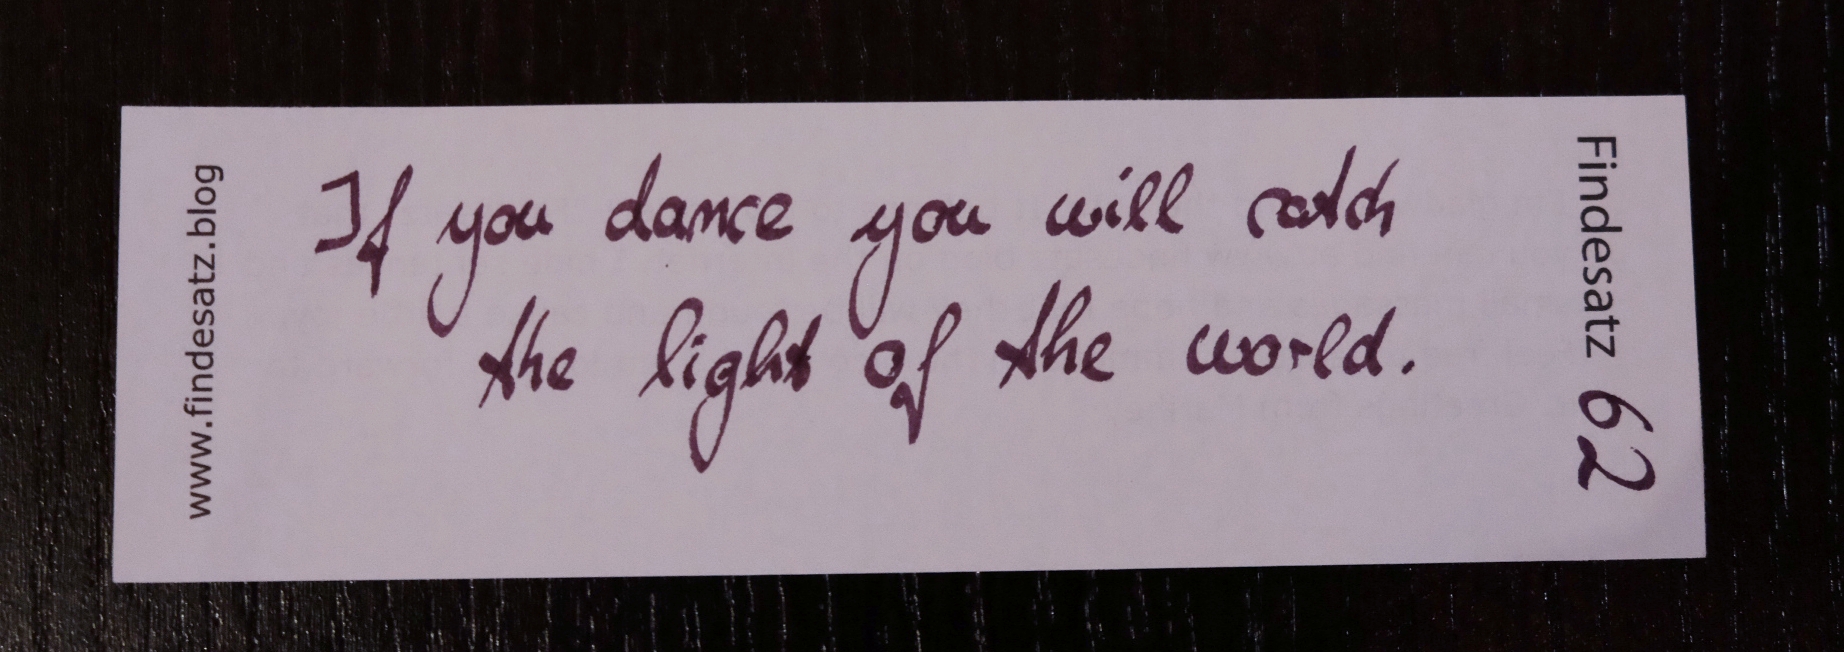 www.findesatz.blog
If you dance you will catch
the light of the world.
Findesatz 62